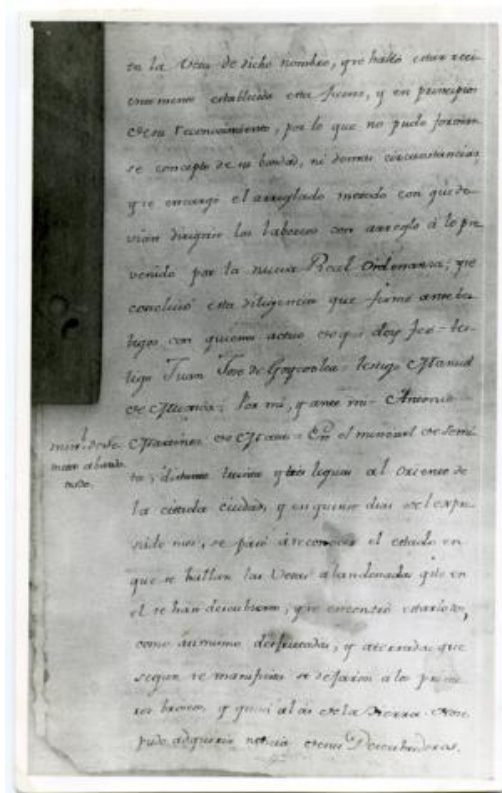 en la Veta de dicho nombre, y se halló estar reci-
enemente establecida esta faena, y en principios
de su reconocimiento, por lo que no pudo formar
se concepto de su bondad, ni demas circunstancias
y se encargó el arreglado metodo con que de-
vian dirigirse las labores con arreglo á lo pre
venido por la nueva Real Ordenanza; y se
concluió esta diligencia que firmó ante tes
tigos con quienes actuo de que doy fee- tes-
tigo Juan José de Goycoolea: testigo Manuel
de : Por mi, y ante mi- Antonio
Martinez de Mata: En el mineral de
abando
nado.
to, distante treinta y tres leguas al Oriente de
la citada ciudad, y en quince dias del expre
sado mes, se pasó á reconocer el estado en
que se hallan las Vetas abandonadas que en
el se han descubierto, y se encontró estarlo
como asimismo disfrutadas, y aterradas que
segun se manifiesta se dejaron a los prime
ros brozeos, y quasi al as de la tierra. Nose
pudo adquirir noticia de sus Descubridores.